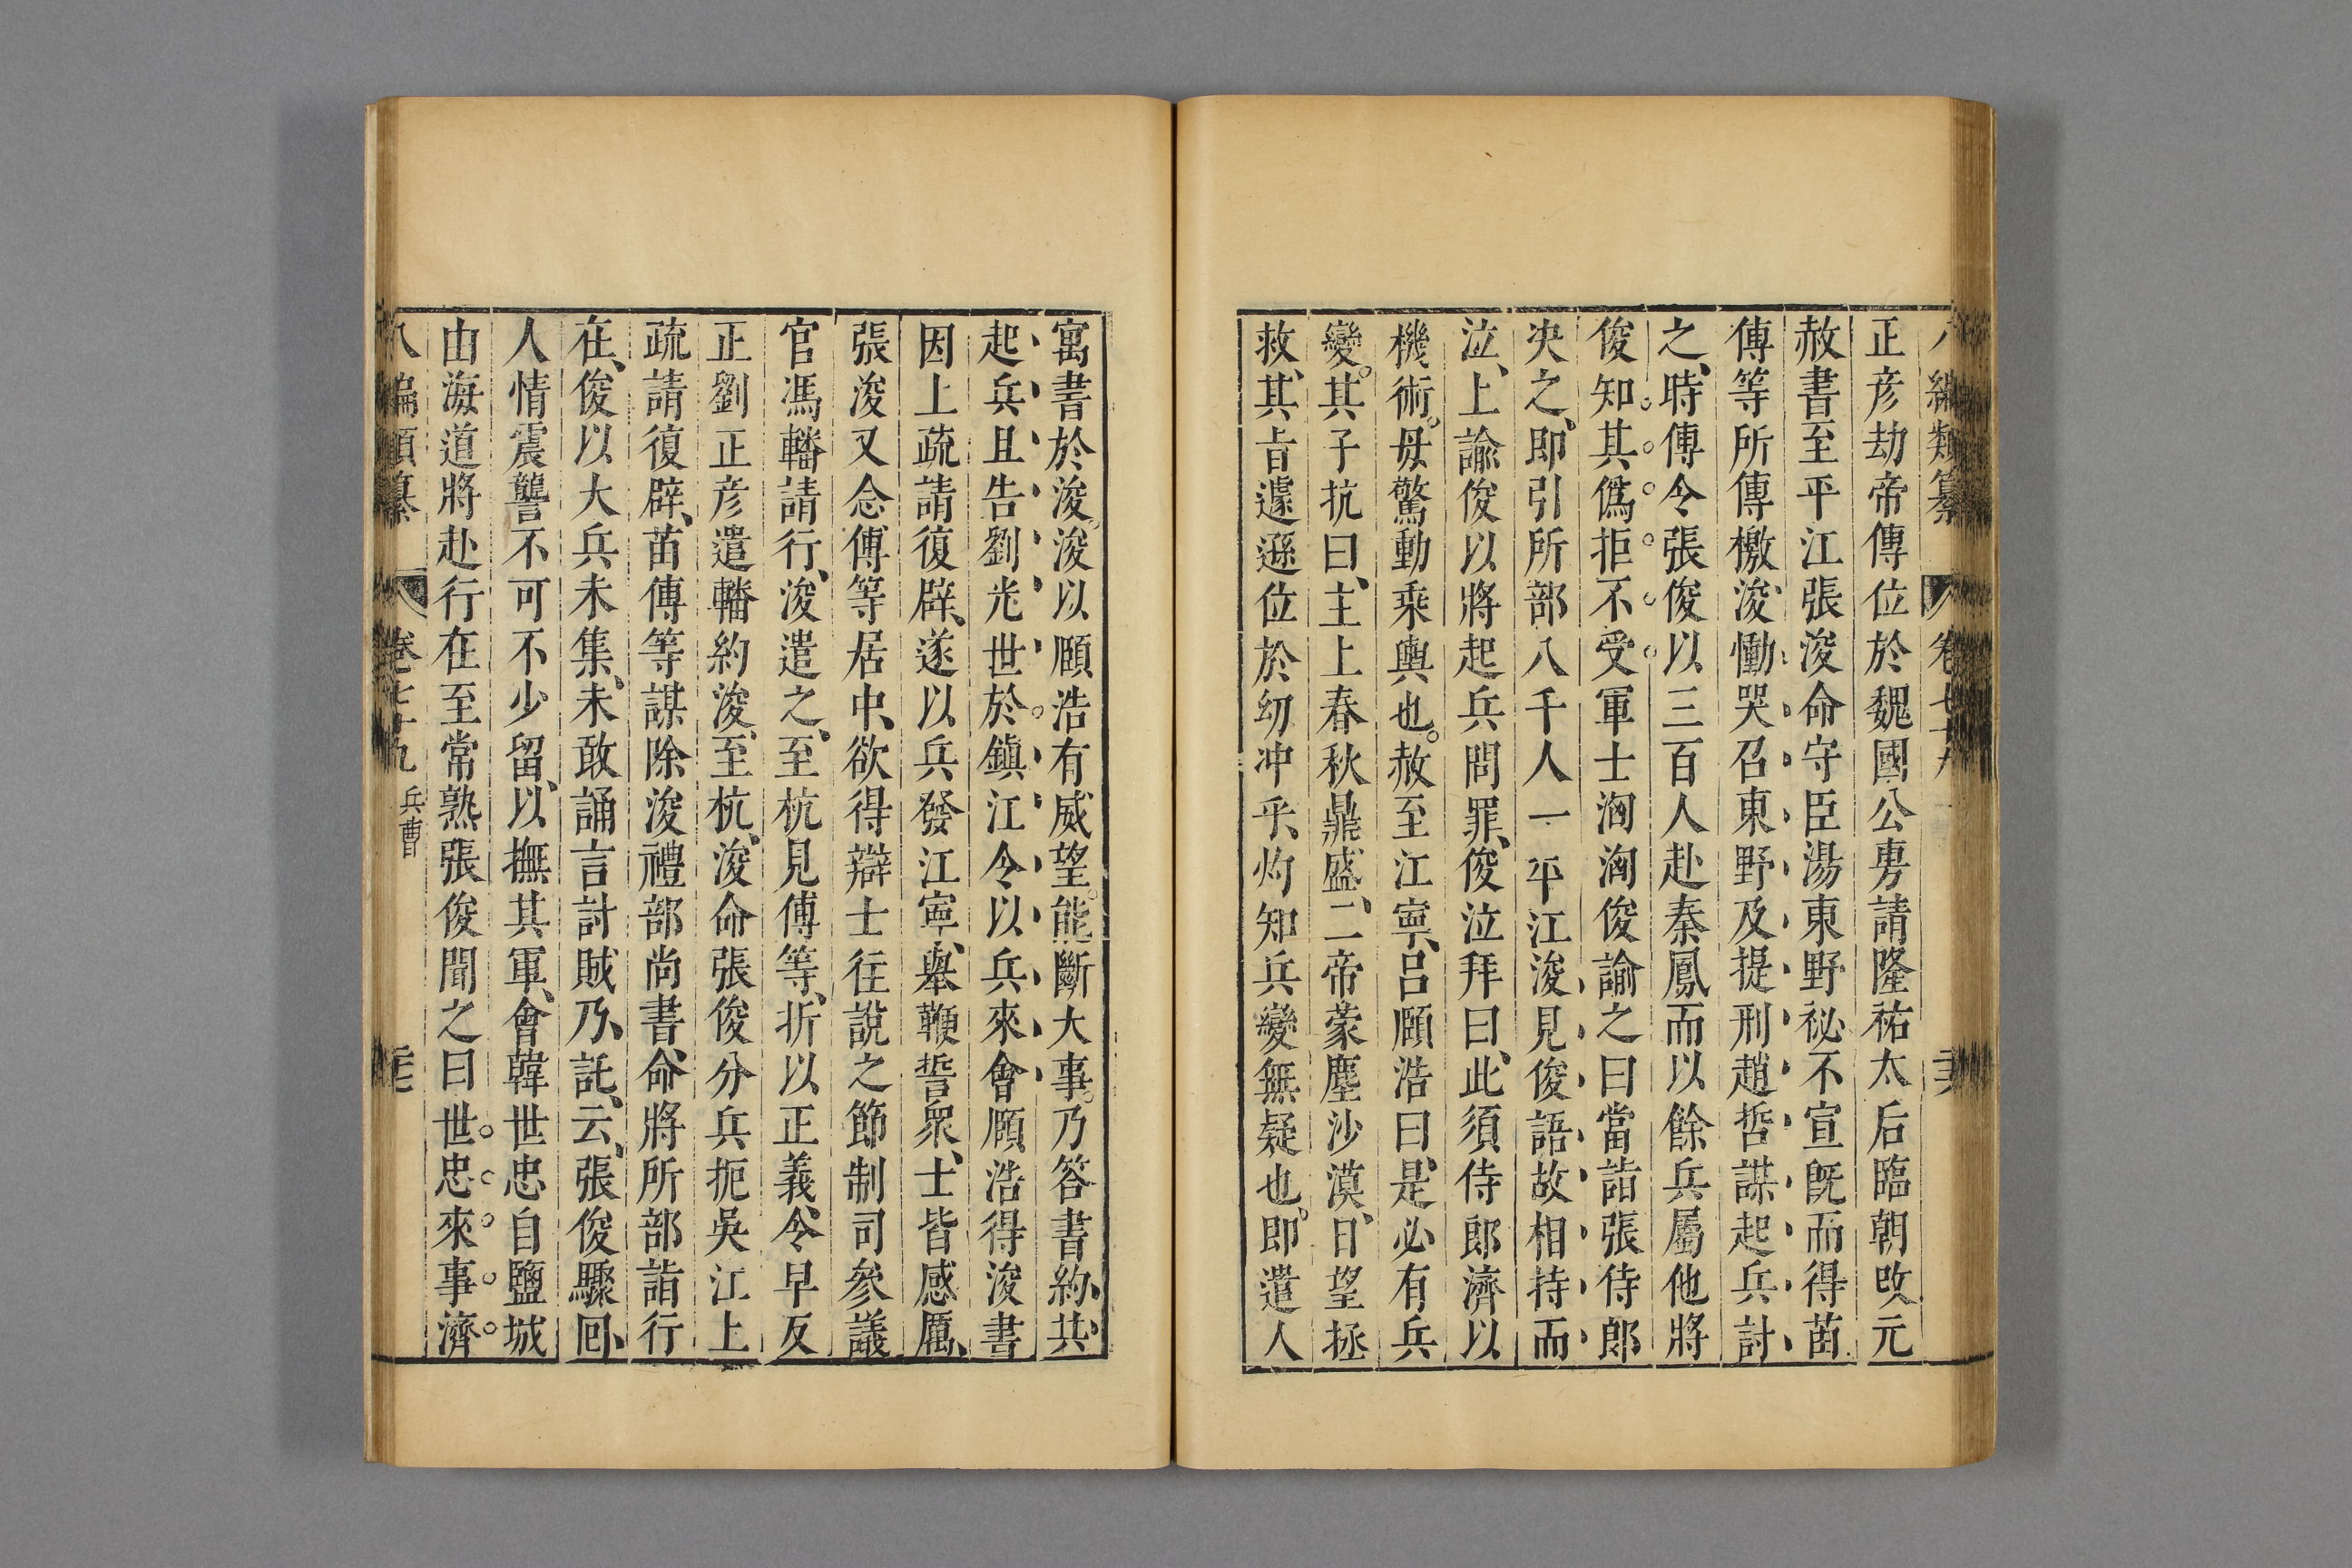 八編類纂 卷七十九
正彦劫帝傳位於魏國公旉請隆祐太后臨朝改元
赦書至平江張浚命守臣湯東野祕不宣旣而得苗
傅等所傳檄浚慟哭召東野及提刑趙哲謀起兵討
之、時傅令張俊以三百人赴秦鳳而以餘兵屬他將
俊知其僞拒不受軍士洶洶俊諭之曰當詣張侍郎
决之、即引所部八千人一平江浚見俊語故相持而
泣、上諭俊以將起兵問罪、俊泣拜曰、此須侍郎濟以
機術。毋驚動乘輿也。赦至江寧、呂頤浩曰、是必有兵
變。其子抗曰、主上春秋鼎盛、二帝蒙塵沙漠、日望拯
救、其肯遽遜位於幼冲乎、灼知兵變無疑也。即遣人
寓書於浚。浚以頤浩有威望。能斷大事。乃答書約共
起兵且告劉光世於鎮江令以兵來會頤浩得浚書
因上疏請復辟、遂以兵發江寧、舉鞭誓衆、士皆感厲、
張浚又念傅等居中、欲得辯士往說之節制司參議
官馮轓請行、浚遣之、至杭見傅等、折以正義、令早反
正劉正彦遣轓約浚、至杭、浚命張俊分兵扼吳江上
疏請復辟、苗傅等謀除浚禮部尚書、命將所部詣行
在、俊以大兵未集、未敢誦言討賊乃、託、云、張俊驟囘、
人情震讋不可不少留、以撫其軍、會韓世忠自鹽城
由海道將赴行在至常熟張俊聞之曰世忠來事濟
八編類纂 卷七十九 兵曹